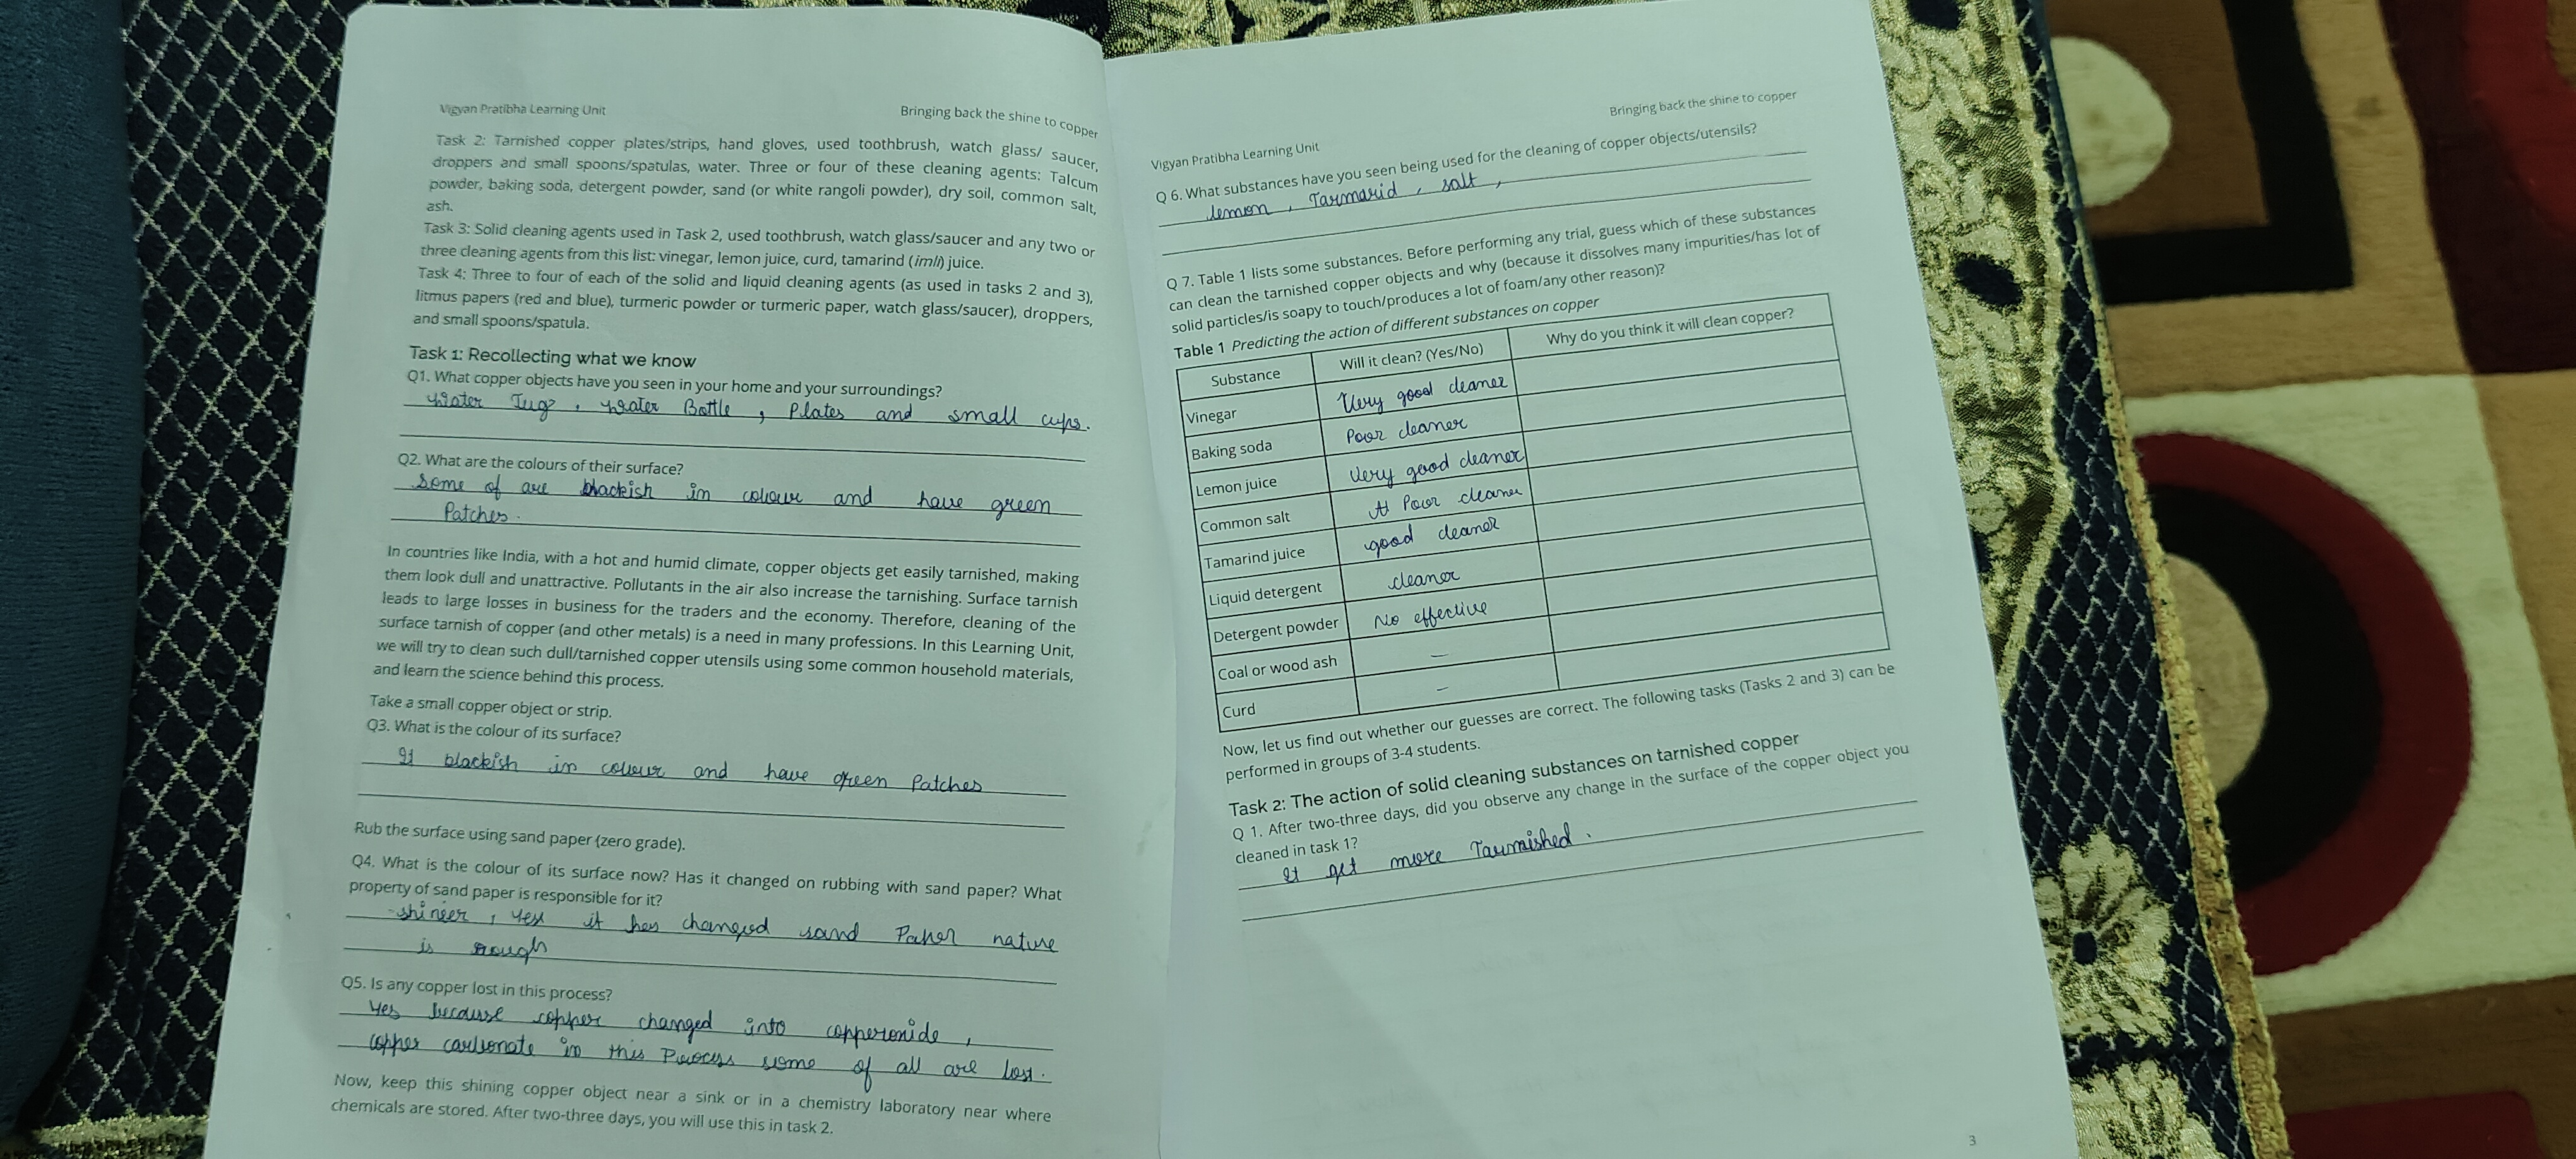 Vigyan Pratibha Learning Unit
Bringing back the shine to copper
Task 2: Tarnished copper plates/strips, hand gloves, used toothbrush, watch glass/ saucer,
droppers and small spoons/spatulas, water. Three or four of these cleaning agents: Talcum
powder, baking soda, detergent powder, sand (or white rangoli powder), dry soil, common salt,
ash.
Task 3: Solid cleaning agents used in Task 2, used toothbrush, watch glass/saucer and any two or
three cleaning agents from this list: vinegar, lemon juice, curd, tamarind (imli) juice.
Task 4: Three to four of each of the solid and liquid cleaning agents (as used in tasks 2 and 3),
litmus papers (red and blue), turmeric powder or turmeric paper, watch glass/saucer), droppers,
and small spoons/spatula.
Task 1: Recollecting what we know
Q1. What copper objects have you seen in your home and your surroundings?
water Jugs, water Bottle, Plates and small cups.
Q2. What are the colours of their surface?
Some of are blackish in colour and have green
Patches.
In countries like India, with a hot and humid climate, copper objects get easily tarnished, making
them look dull and unattractive. Pollutants in the air also increase the tarnishing. Surface tarnish
leads to large losses in business for the traders and the economy. Therefore, cleaning of the
surface tarnish of copper (and other metals) is a need in many professions. In this Learning Unit,
we will try to clean such dull/tarnished copper utensils using some common household materials,
and learn the science behind this process.
Take a small copper object or strip.
Q3. What is the colour of its surface?
It blackish in colour and have green Patches
Rub the surface using sand paper (zero grade).
Q4. What is the colour of its surface now? Has it changed on rubbing with sand paper? What
property of sand paper is responsible for it?
shineer, yes it has changed sand Paper nature
is rough
Q5. Is any copper lost in this process?
Yes because copper changed into copperoxide,
copper carbonate in this Process some of all are lost.
Now, keep this shining copper object near a sink or in a chemistry laboratory near where
chemicals are stored. After two-three days, you will use this in task 2.
Vigyan Pratibha Learning Unit
Bringing back the shine to copper
Q 6. What substances have you seen being used for the cleaning of copper objects/utensils?
lemon, Tarmarid, salt,
Q 7. Table 1 lists some substances. Before performing any trial, guess which of these substances
can clean the tarnished copper objects and why (because it dissolves many impurities/has lot of
solid particles/is soapy to touch/produces a lot of foam/any other reason)?
Table 1 Predicting the action of different substances on copper
Substance Will it clean? (Yes/No) Why do you think it will clean copper?
Vinegar Very good cleaner
Baking soda Poor cleaner
Lemon juice Very good cleaner
Common salt Poor cleaner
Tamarind juice good cleaner
Liquid detergent cleaner
Detergent powder No effective
Coal or wood ash –
Curd –
Now, let us find out whether our guesses are correct. The following tasks (Tasks 2 and 3) can be
performed in groups of 3-4 students.
Task 2: The action of solid cleaning substances on tarnished copper
Q 1. After two-three days, did you observe any change in the surface of the copper object you
cleaned in task 1?
It get more Tarnished.
3